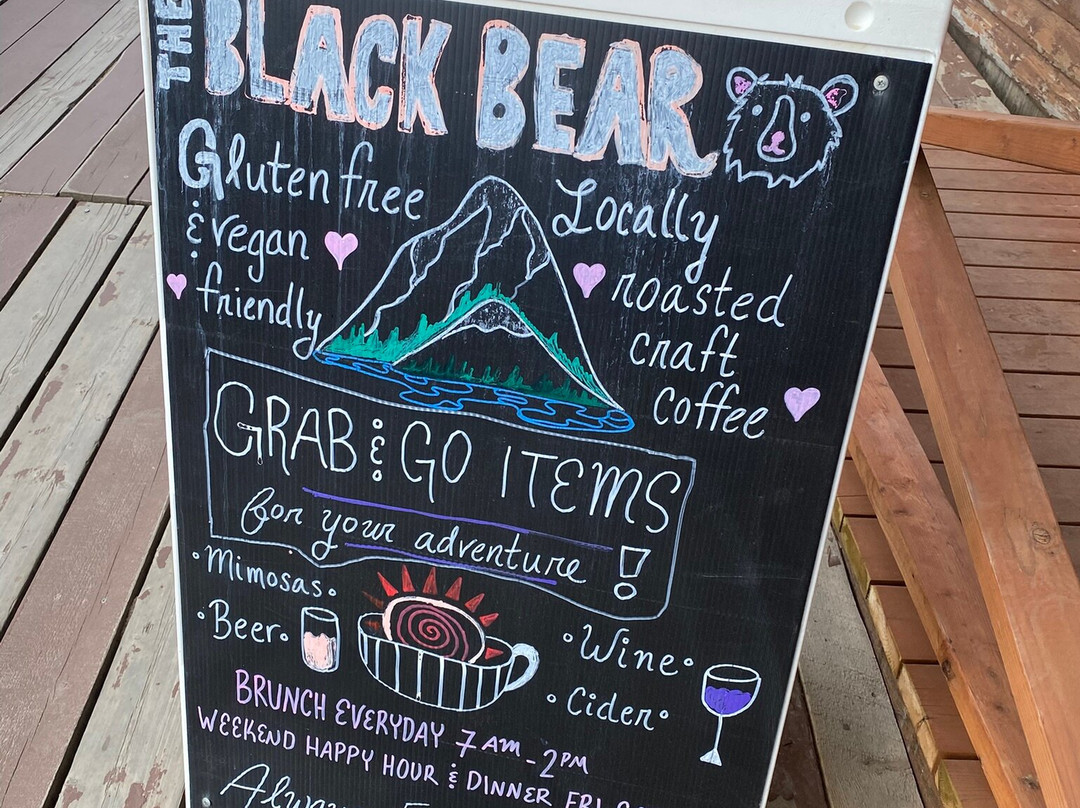 THE BLACK BEAR
Gluten free
& vegan
friendly
Locally
roasted
craft
coffee
GRAB & GO ITEMS
for your adventure!
• Mimosas •
• Beer •
• Wine •
• Cider •
BRUNCH EVERYDAY 7AM - 2PM
WEEKEND HAPPY HOUR & DINNER FRI